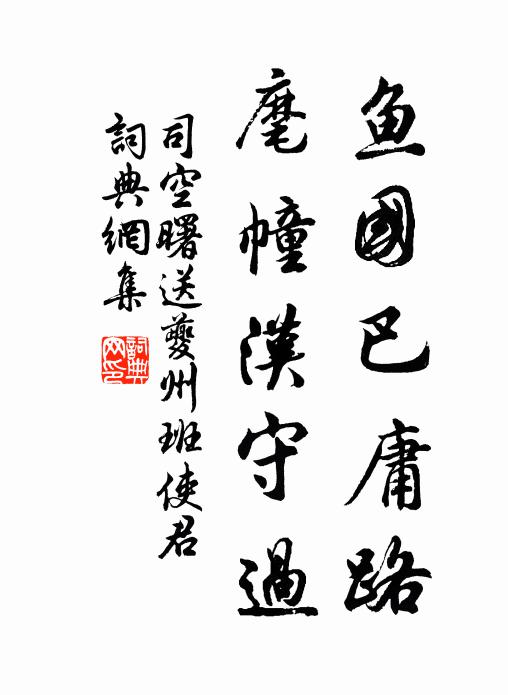 鱼國巴庸路
麾幢漢守過
司空曙送夔州班使君
詞典網集
詞典网印